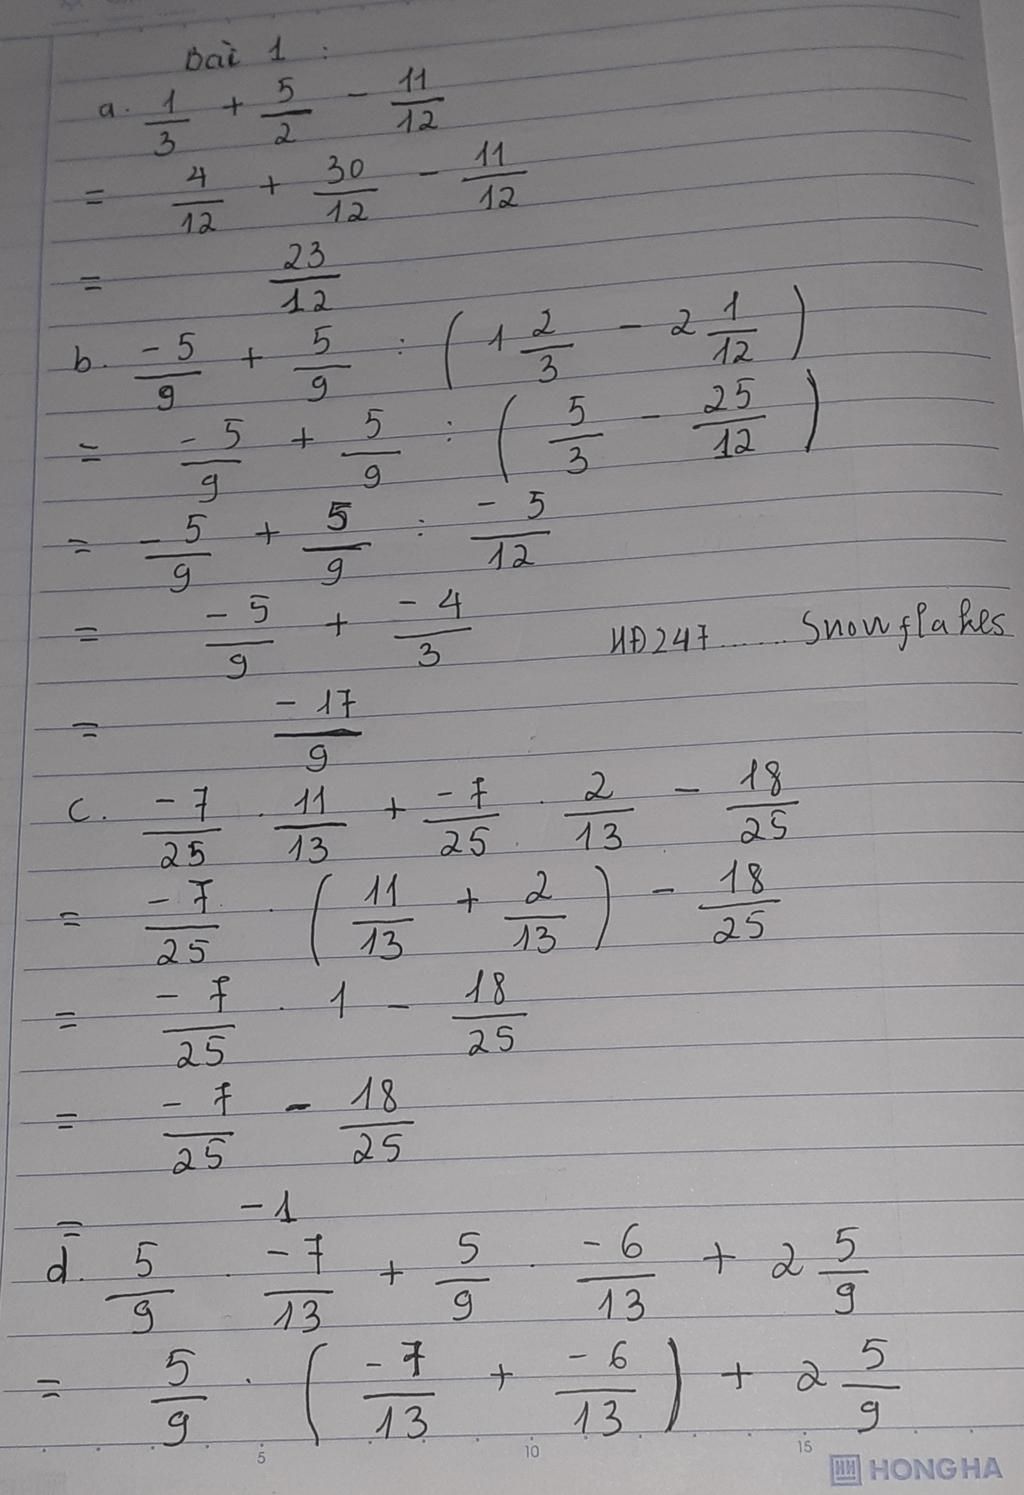 Bài 1 :
a. 1/3 + 5/2 - 11/12
= 4/12 + 30/12 - 11/12
= 23/12
b. -5/9 + 5/9 : ( 1 2/3 - 2 1/12 )
= -5/9 + 5/9 : ( 5/3 - 25/12 )
= -5/9 + 5/9 : -5/12
= -5/9 + -4/3
HĐ247...... Snowflakes
= -17/9
c. -7/25 . 11/13 + -7/25 . 2/13 - 18/25
= -7/25 . ( 11/13 + 2/13 ) - 18/25
= -7/25 . 1 - 18/25
= -7/25 - 18/25
= -1
d. 5/9 . -7/13 + 5/9 . -6/13 + 2 5/9
= 5/9 . ( -7/13 + -6/13 ) + 2 5/9
5 10 15
HONG HA